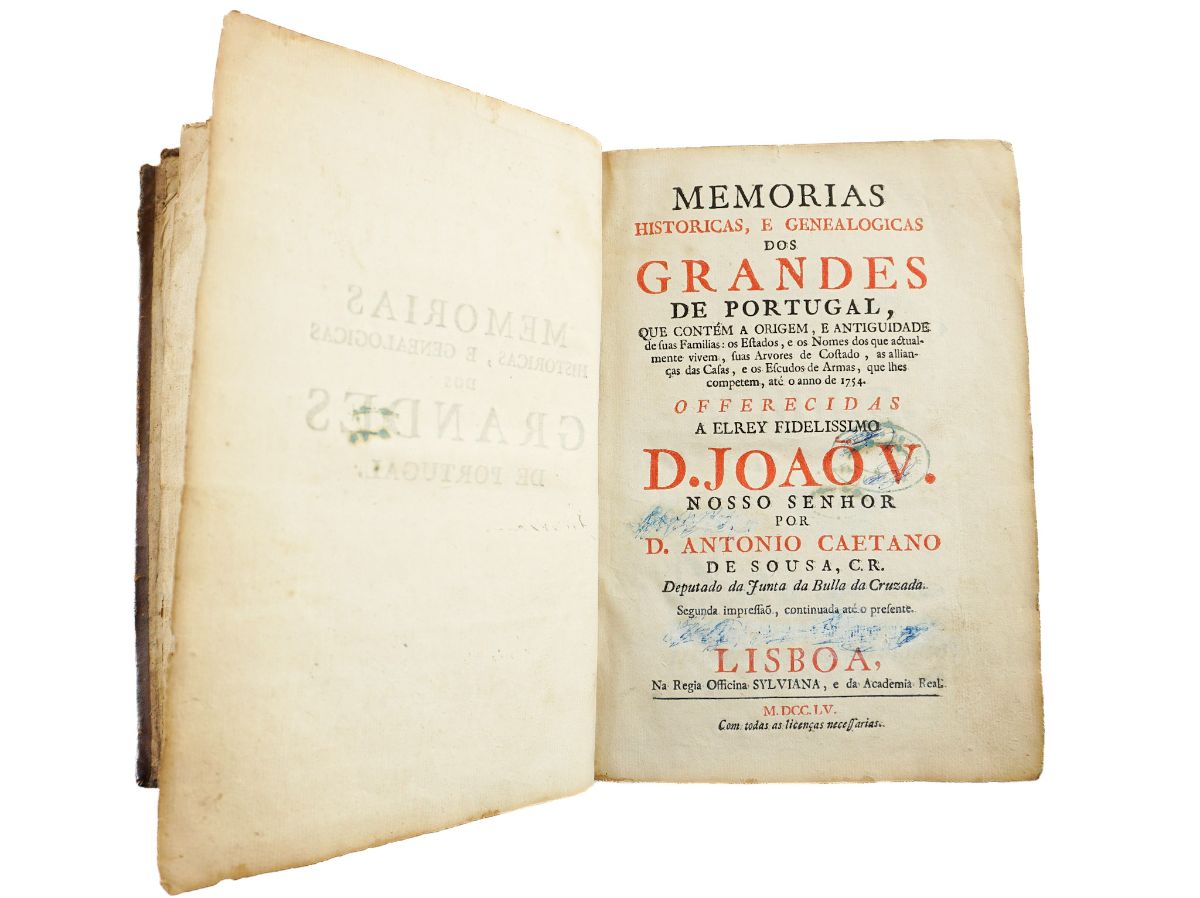 MEMORIAS
HISTORICAS, E GENEALOGICAS
DOS
GRANDES
DE PORTUGAL
MEMORIAS
HISTORICAS, E GENEALOGICAS
DOS
GRANDES
DE PORTUGAL,
QUE CONTÉM A ORIGEM, E ANTIGUIDADE
de ſuas Familias: os Eſtados, e os Nomes dos que actual-
mente vivem, ſuas Arvores de Coſtado, as allian-
ças das Caſas, e os Eſcudos de Armas, que lhes
competem, até o anno de 1754.
OFFERECIDAS
A ELREY FIDELISSIMO
D. JOAÕ V.
NOSSO SENHOR
POR
D. ANTONIO CAETANO
DE SOUSA, C.R.
Deputado da Junta da Bulla da Cruzada.
Segunda impreſſaõ, continuada até o preſente.
LISBOA,
Na Regia Officina SYLVIANA, e da Academia Real.
M.DCC.LV.
Com todas as licenças neceſſarias.